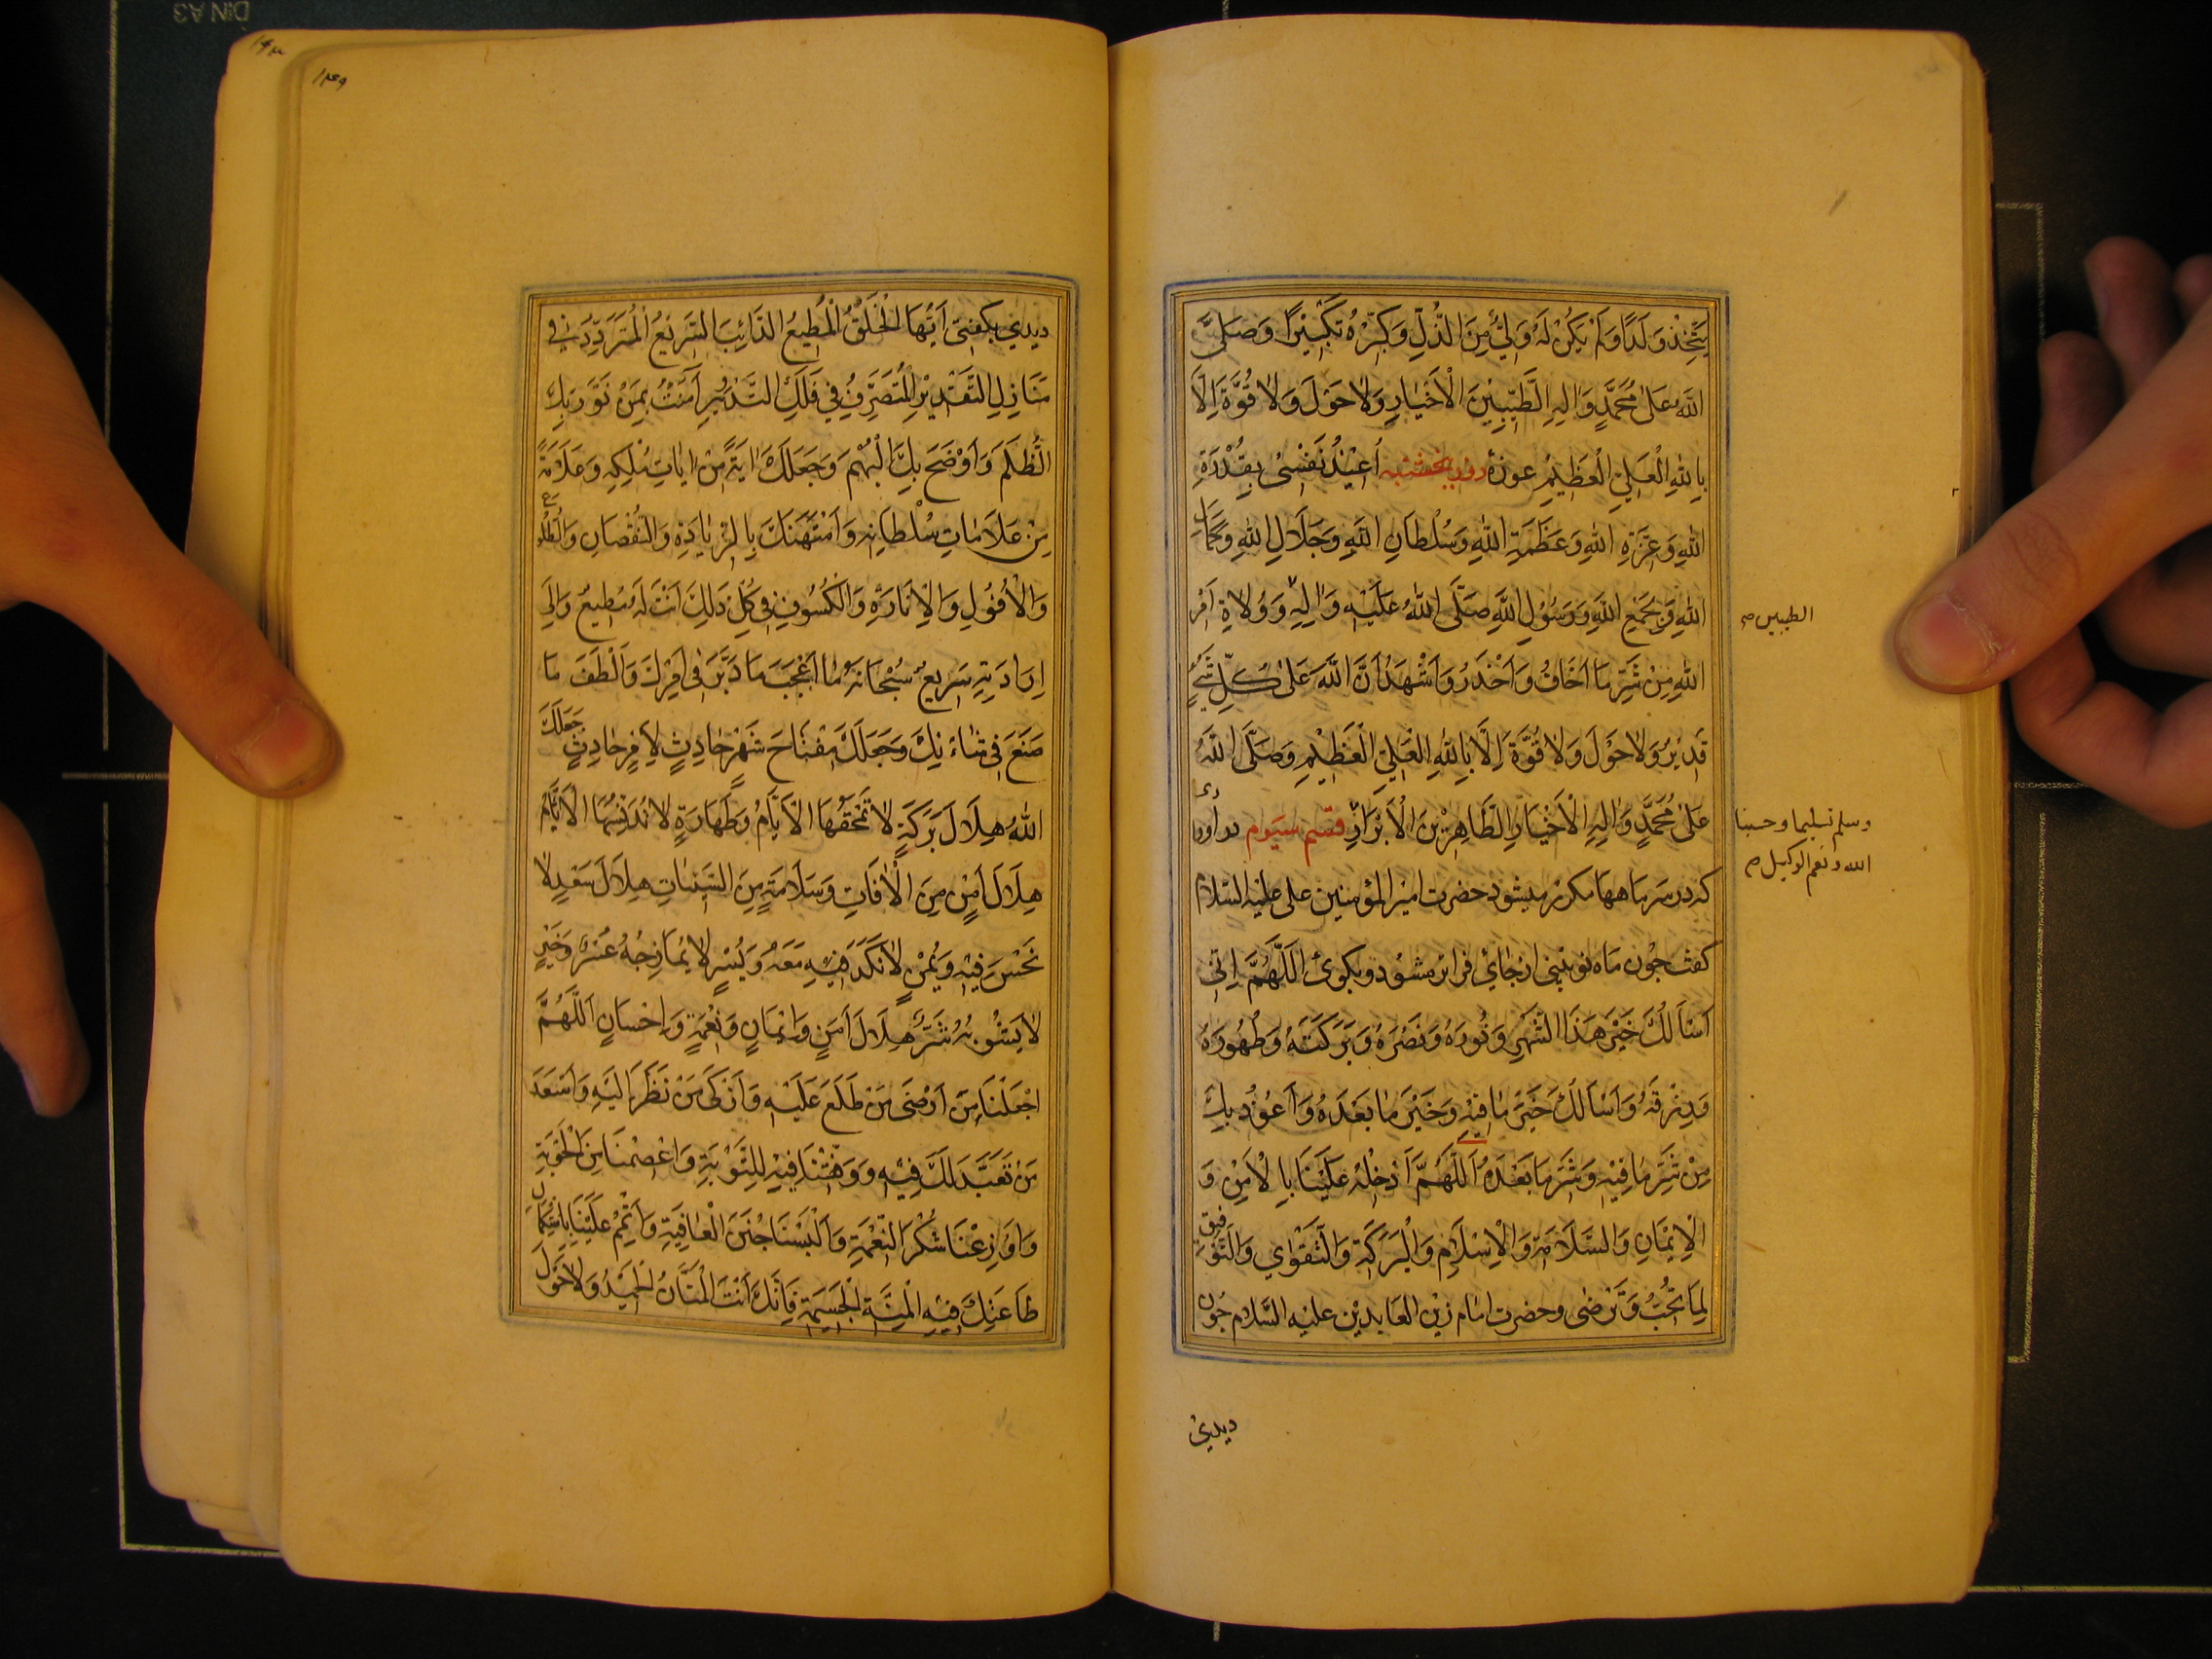 يَتَّخِذْ وَلَدًا وَلَمْ يَكُنْ لَهُ وَلِيٌّ مِنَ الذُّلِّ وَكَبِّرْهُ تَكْبِيْرًا وَصَلَّى
اللهُ عَلٰى مُحَمَّدٍ وَاٰلِهِ الطَّيِّبِيْنَ الْاَخْيٰارِ وَلٰا حَوْلَ وَلٰا قُوَّةَ اِلَّا
بِاللهِ الْعَلِيِّ الْعَظِيْمِ عوذهٔ روز پنجشنبه اُعِيْذُ نَفْسِيْ بِقُدْرَةِ
اللهِ وَعِزَّةِ اللهِ وَعَظَمَةِ اللهِ وَسُلْطٰانِ اللهِ وَجَلَالِ اللهِ وَكَمَالِ
اللهِ وَبِجَمْعِ اللهِ وَرَسُوْلِ اللهِ صَلَّى اللهُ عَلَيْهِ وَاٰلِهِ وَوُلٰاةِ اَمْرِ
الطيبين صح
اللهِ مِنْ شَرِّ مٰا اَخَافُ وَاَحْذَرُ وَاَشْهَدُ اَنَّ اللهَ عَلٰى كُلِّ شَيْءٍ
قَدِيْرٌ وَلٰا حَوْلَ وَلٰا قُوَّةَ اِلَّا بِاللهِ الْعَلِيِّ الْعَظِيْمِ وَصَلَّى اللهُ
عَلٰى مُحَمَّدٍ وَاٰلِهِ الْاَخْيٰارِ الطَّاهِرِيْنَ الْاَبْرَارِ قسم سيوم در اورادى
وسلم تسليما وحسبنا
الله ونعم الوكيل صح
كه در سر ماهها مكرر ميشود حضرت امير المؤمنين على عليه السلام
كفت چون ماه نو بينى از جاى فراتر مشو و بكوى اَللّٰهُمَّ اِنِّي
اَسْاَلُكَ خَيْرَ هَذَا الشَّهْرِ وَنُورَهُ وَنَصْرَهُ وَبَرَكَتَهُ وَطُهُورَهُ
وَرِزْقَهُ وَاَسْاَلُكَ خَيْرَ مٰا فِيْهِ وَخَيْرَ مٰا بَعْدَهُ وَاَعُوْذُ بِكَ
مِنْ شَرِّ مٰا فِيْهِ وَشَرِّ مٰا بَعْدَهُ اَللّٰهُمَّ اَدْخِلْهُ عَلَيْنَا بِالْاَمْنِ وَ
الْاِيْمٰانِ وَالسَّلَامَةِ وَالْاِسْلَامِ وَالْبَرَكَةِ وَالتَّقْوٰى وَالتَّوْفِيْقِ
لِمٰا تُحِبُّ وَتَرْضٰى وحضرت امام زين العابدين عليه السلام چون
ديدى
١٤٩
ديدى بكفتى اَيُّهَا الْخَلْقُ الْمُطِيعُ الدَّائِبُ السَّرِيْعُ الْمُتَرَدِّدُ فِي
مَنَازِلِ التَّقْدِيْرِ الْمُتَصَرِّفُ فِي فَلَكِ التَّدْبِيرِ اٰمَنْتُ بِمَنْ نَوَّرَ بِكَ
الظُّلَمَ وَاَوْضَحَ بِكَ الْبُهَمَ وَجَعَلَكَ اٰيَةً مِنْ اٰيٰاتِ مُلْكِهِ وَعَلَامَةً
مِنْ عَلَامٰاتِ سُلْطٰانِهِ وَامْتَهَنَكَ بِالزِّيٰادَةِ وَالنُّقْصَانِ وَالطُّلُوعِ
وَالْاُفُوْلِ وَالْاِنَارَةِ وَالْكُسُوْفِ فِي كُلِّ ذَلِكَ اَنْتَ لَهُ مُطِيعٌ وَاِلَى
اِرَادَتِهِ سَرِيعٌ سُبْحَانَهُ مٰا اَعْجَبَ مَا دَبَّرَ فِي اَمْرِكَ وَاَلْطَفَ مَا
صَنَعَ فِي شَاْنِكَ وَجَعَلَكَ مِفْتٰاحَ شَهْرٍ حٰادِثٍ لِاَمْرٍ حٰادِثٍ جَعَلَكَ
اللهُ هِلَالَ بَرَكَةٍ لٰا تَمْحَقُهَا الْاَيّٰامُ وَطَهَارَةٍ لٰا تُدَنِّسُهَا الْاٰثَامُ
هِلَالَ اَمْنٍ مِنَ الْاٰفَاتِ وَسَلَامَةٍ مِنَ السَّيِّئٰاتِ هِلَالَ سَعْدٍ لٰا
نَحْسَ فِيْهِ وَيُمْنٍ لٰا نَكَدَ فِيْهِ مَعَهُ وَيُسْرٍ لٰا يُمٰازِجُهُ عُسْرٌ وَخَيْرٍ
لٰا يَشُوْبُهُ شَرٌّ هِلَالَ اَمْنٍ وَاِيْمٰانٍ وَنِعْمَةٍ وَاِحْسَانٍ اَللّٰهُمَّ
اجْعَلْنَا مِنْ اَرْضَى مَنْ طَلَعَ عَلَيْهِ وَاَزْكَى مَنْ نَظَرَ اِلَيْهِ وَاَسْعَدَ
مَنْ تَعَبَّدَ لَكَ فِيْهِ وَوَفِّقْنَا فِيْهِ لِلتَّوْبَةِ وَاعْصِمْنَا مِنَ الْحَوْبَةِ
وَاَوْزِعْنَا شُكْرَ النِّعْمَةِ وَاَلْبِسْنَا جُنَنَ الْعٰافِيَةِ وَاَتْمِمْ عَلَيْنَا بِاسْتِكْمَالِ
طٰاعَتِكَ فِيْهِ الْمِنَّةَ الْجَسِيْمَةَ فَاِنَّكَ اَنْتَ الْمَنَّانُ الْحَمِيْدُ وَلٰا حَوْلَ